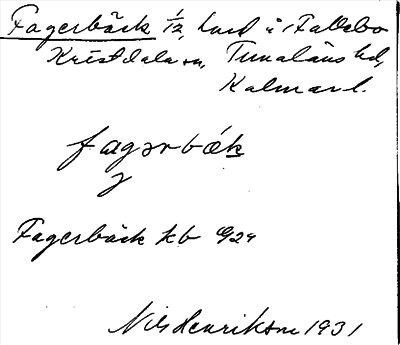 Fagerbäck 1/2, lund i Fallebo
Kristdala sn, Tunaläns hd,
Kalmar l.
fagərbæk
Fagerbäck kb 1929
Nils Henriksson 1931